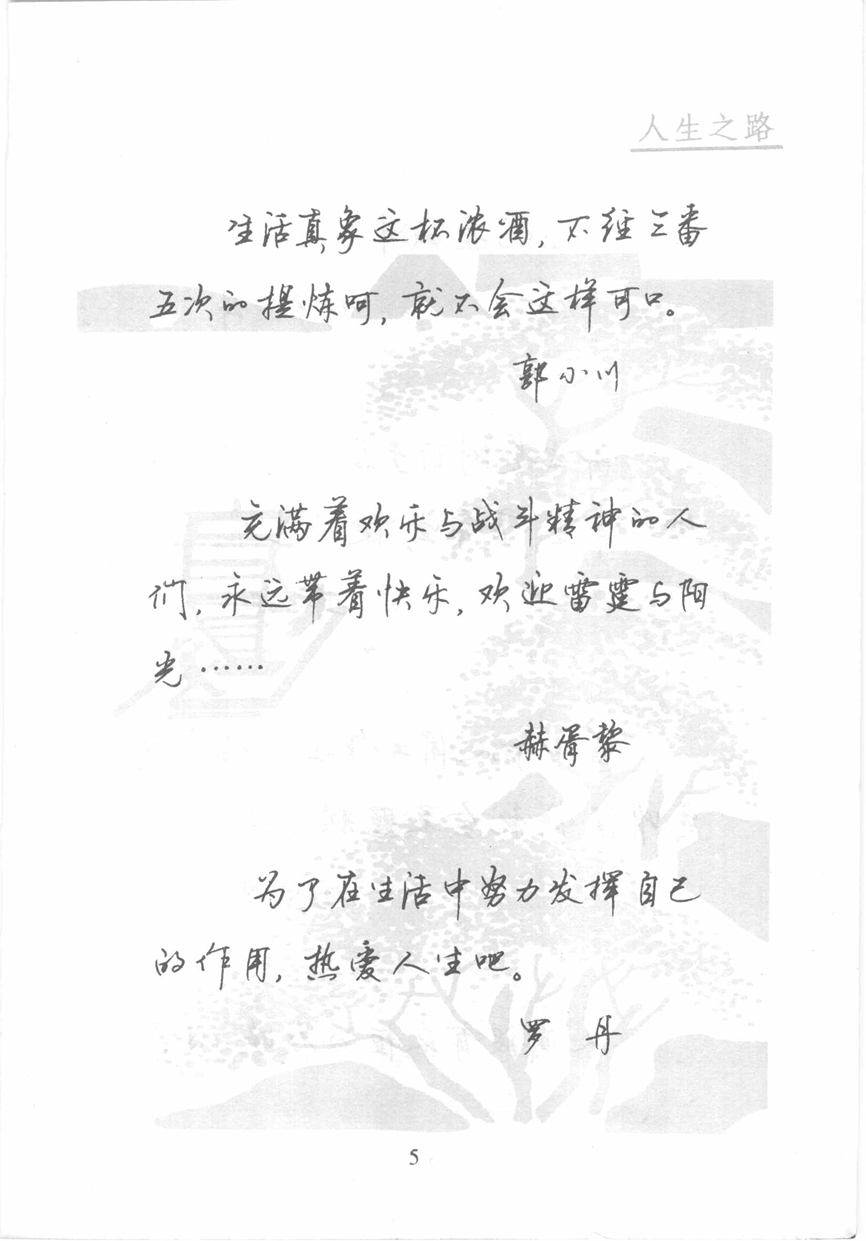 人生之路
生活真象这杯浓酒，不经三番
五次的提炼呵，就不会这样可口。
郭小川
充满着欢乐与战斗精神的人
们，永远带着快乐，欢迎雷霆与阳
光……
赫胥黎
为了在生活中努力发挥自己
的作用，热爱人生吧。
罗 丹
5